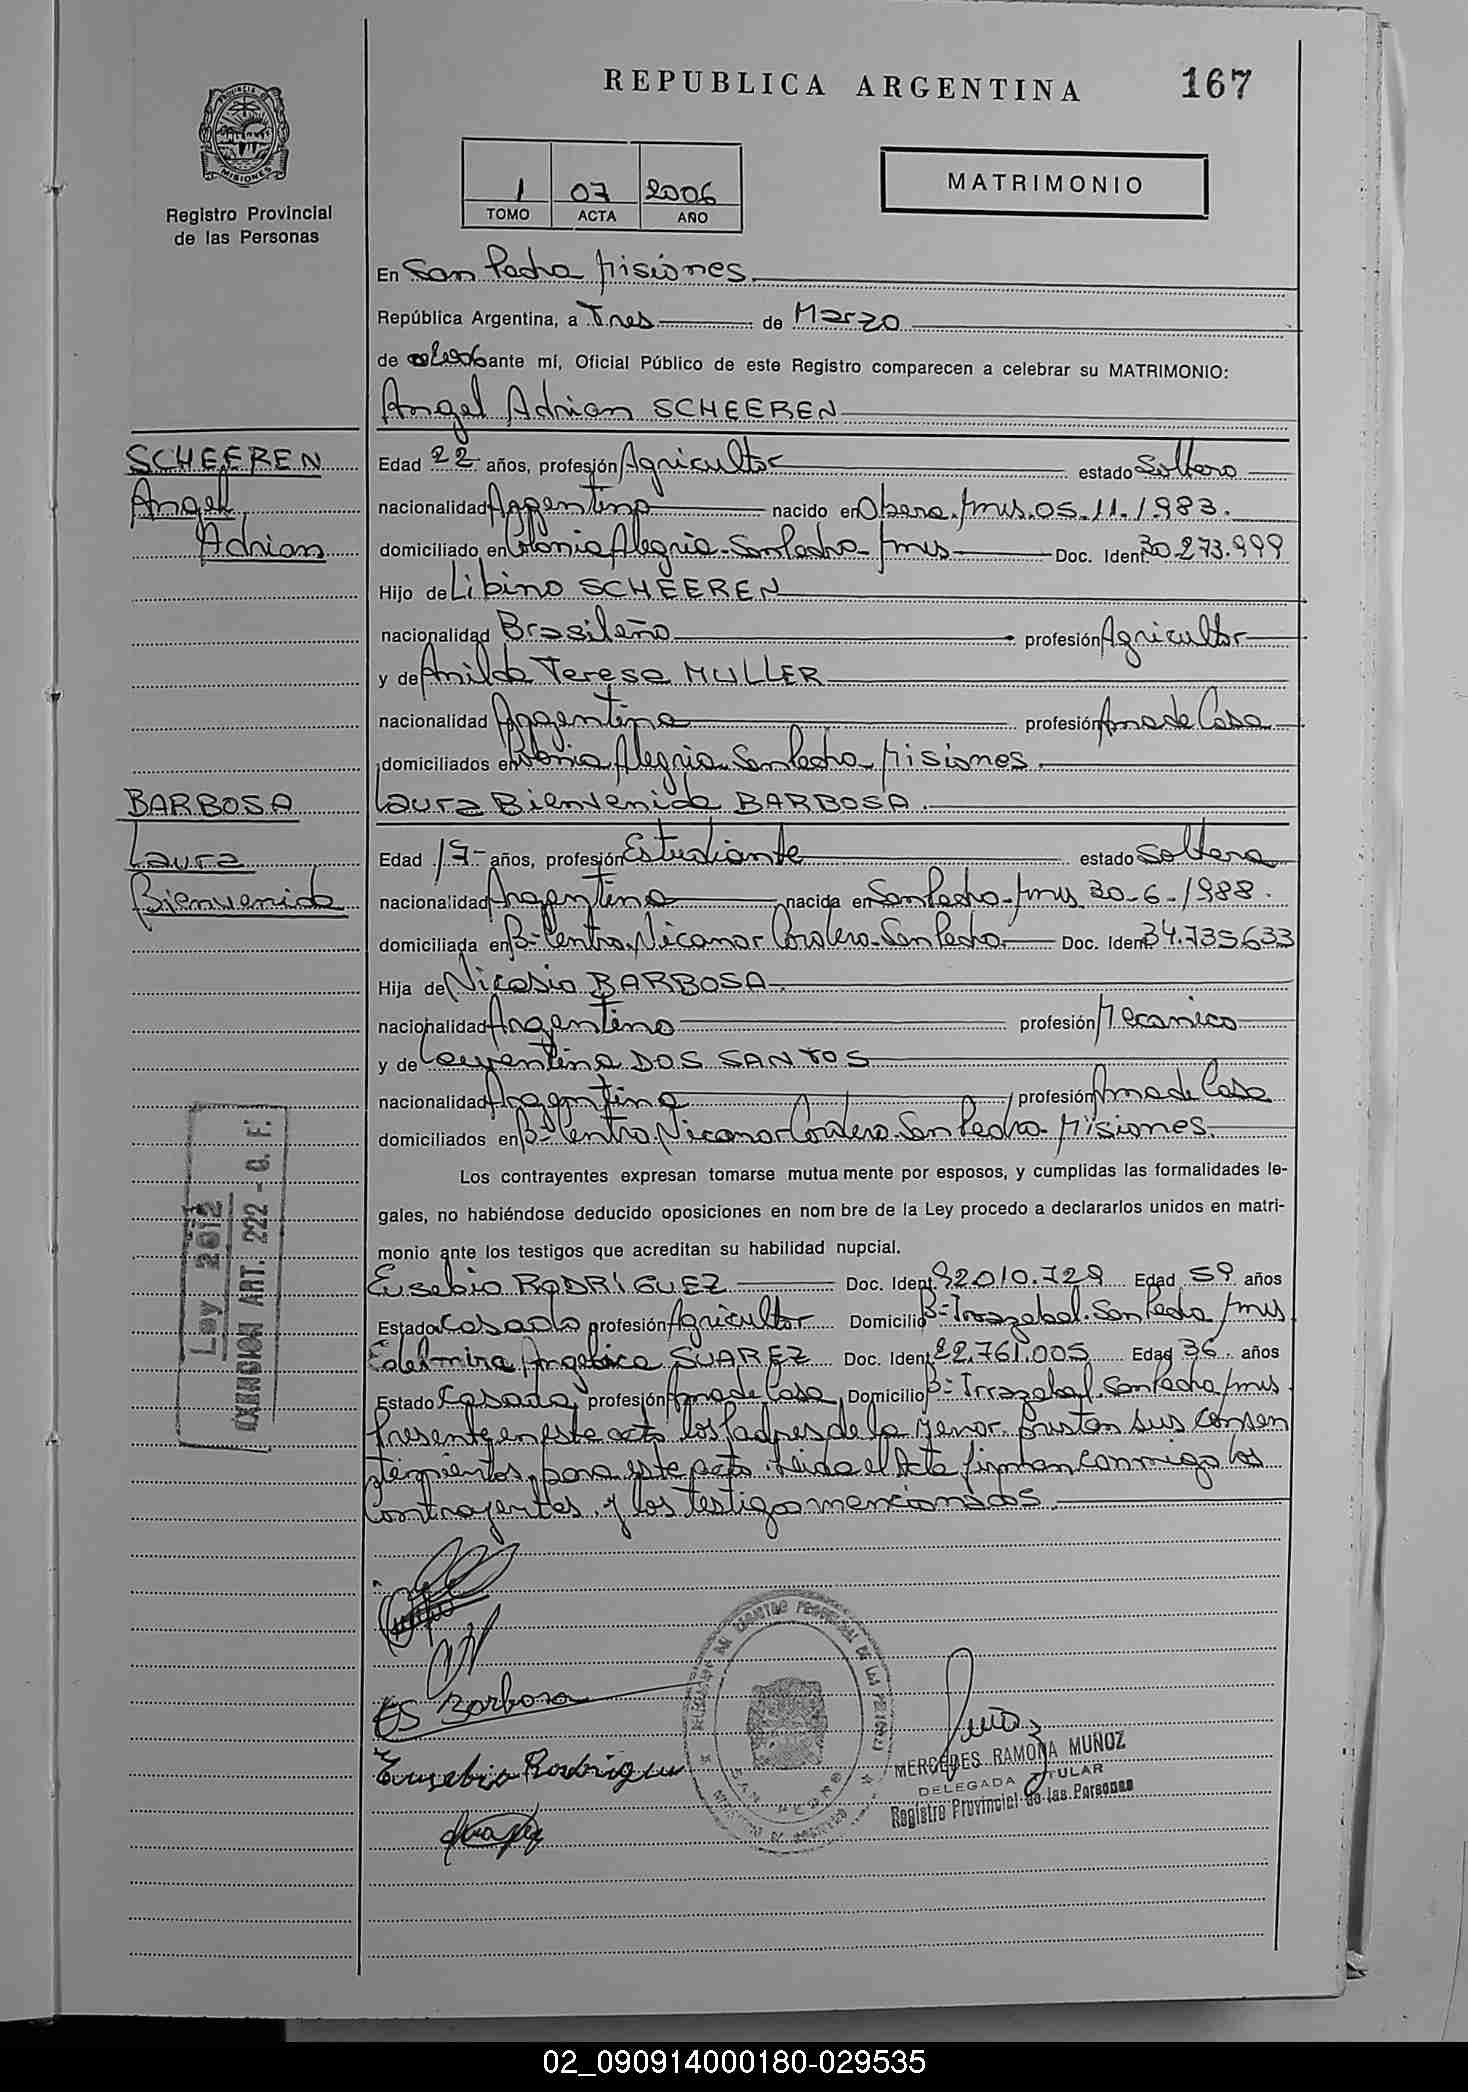 REPUBLICA ARGENTINA 167
PROVINCIA DE MISIONES
Registro Provincial
de las Personas
1 07 2006
TOMO ACTA AÑO
MATRIMONIO
En San Pedro Misiones
República Argentina, a Tres de Marzo
de ante mí, Oficial Público de este Registro comparecen a celebrar su MATRIMONIO:
Angel Adrian SCHEEREN
SCHEEREN
Angel
Adrian
Edad 22 años, profesión Agricultor estado Soltero
nacionalidad Argentino nacido en Obera. Mnes. 05.11.1983.
domiciliado en Colonia Alegria - San Pedro - Mnes Doc. Ident. 30.273.999
Hijo de Libino SCHEEREN
nacionalidad Brasileño profesión Agricultor
y de Anilda Teresa MULLER
nacionalidad Argentina profesión Ama de Casa
domiciliados en Colonia Alegria San Pedro Misiones
BARBOSA
Laura
Bienvenida
Laura Bienvenida BARBOSA.
Edad 17- años, profesión Estudiante estado Soltera
nacionalidad Argentina nacida en San Pedro - Mnes 30-6-1988.
domiciliada en Bº Centro Nicanor Cordero - San Pedro Doc. Ident. 34.735.633
Hija de Nicasio BARBOSA
nacionalidad Argentino profesión Mecanico
y de DOS SANTOS
nacionalidad Argentina profesión Ama de Casa
domiciliados en Bº Centro Nicanor Cordero San Pedro - Misiones.
Los contrayentes expresan tomarse mutua mente por esposos, y cumplidas las formalidades le-
gales, no habiéndose deducido oposiciones en nom bre de la Ley procedo a declararlos unidos en matri-
monio ante los testigos que acreditan su habilidad nupcial.
Eusebio RODRIGUEZ Doc. Ident. 92.010.729 Edad 59 años
Estado Casado profesión Agricultor Domicilio Bº Irrazabal. San Pedro Mnes
Edelmira Angelica SUAREZ Doc. Ident. 22.761.005 Edad 36. años
Estado Casada profesión Ama de Casa Domicilio Bº Irrazabal. San Pedro Mnes
Presente en este acto los Padres de la Menor. Prestan sus consen
timientos para este acto. Leida el Acta firman conmigo los
Contrayentes y los testigos mencionados
Ley 2612
EXENCION ART. 222 - C. F.
Barbosa
Eusebio Rodriguez
MERCEDES RAMONA MUÑOZ
DELEGADA TITULAR
Registro Provincial de las Personas
02_090914000180-029535